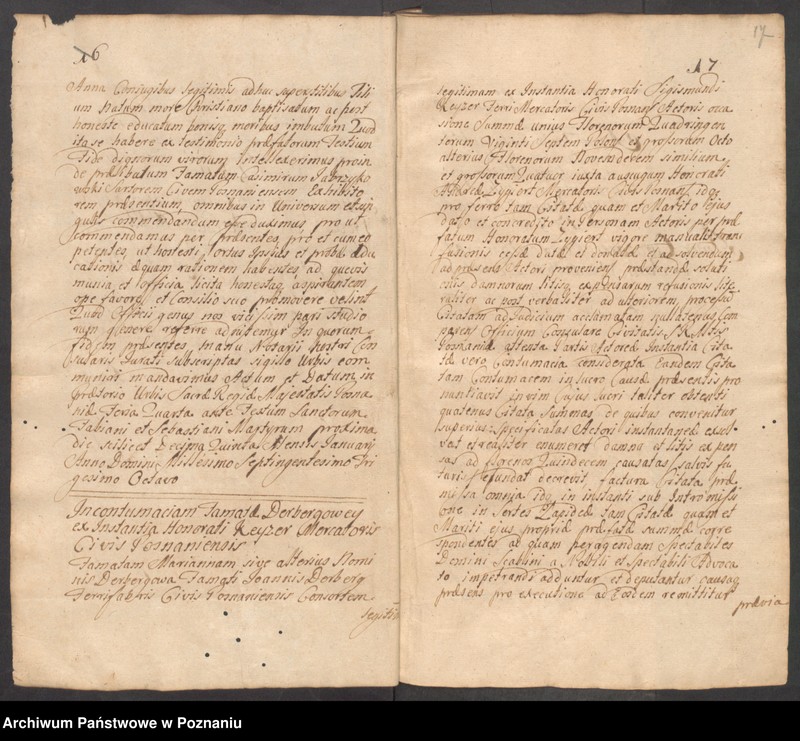 16
Anna Conjugibus legitimis adhuc superstitibus Fili
um natum more Christiano baptisatum ac post
honeste educatum bonisq moribus imbutum Quod
ita se habere ex Testimonio præfatorum Testium
Fide dignorum virorum Intelleximus proin
de prælibatum Famatum Casimirum
Sartorem Civem Posnaniensem Exhibito
rem præsentium, omnibus in Universum et sin
gulis commendandum esse duximus prout
commendamus per præsentes, pro et cum eo
petentes, ut honesti Ortus Ipsius et probæ edu
cationis æquam rationem habentes, ad quævis
munia et officia licita honestaq aspirantem
ope favore et Consilio suo promovere velint
Quod Officii genus nos vicissim pari studio
rum genere referre adnitemur In quorum
fidem præsentes, manu Notarii nostri Con
sularis Jurati subscriptas sigillo Urbis com
muniri mandavimus Actum et Datum in
Prætorio Urbis Sacræ Regiæ Majestatis Posna
niæ Feria Quarta ante Festum Sanctorum
Fabiani et Sebastiani Martyrum proxima
die scilicet Decima Quinta Mensis Januarii
Anno Domini Millesimo Septingentesimo Tri
gesimo Octavo
In contumaciam Famatæ Derbergowey
ex Instantia Honorati Keyzer Mercatoris
Civis Posnaniensis
Famatam Mariannam sive alterius Nomi
nis Derbergowa Famati Joannis Derberg
Ferrifabris Civis Posnaniensis Consortem
legitim
17
17
legitimam ex Instantia Honorati Sigismundi
Keyzer Ferri Mercatoris Civis Posnan Actoris occa
sione Summæ unius Florenorum Quadringen
torum Viginti Septem Polon et grossorum Octo
alterius Florenorum Novendecem similium
et grossorum Quatuor iuxta Honorati
Mercatoris Civis Posnan idq
pro ferro tam Citatæ quam et Marito Ejus
dato et concredito in Personam Actoris per præ
fatum Honoratum vigore manualis trans
fusionis cessæ datæ et donatæ et ad solvendum
ad præsens Actori provenien præstandæ solati
onis damnorum litisq expensarum refusionis lite
raliter ac post verbaliter ad ulteriorem processum
Citatam ad Judicium acclamatam nullatenus Com
paren Officium Consulare Civitatis S R Mttis
Posnaniæ attenta Partis Actoreæ Instantia Cita
tæ vero Contumacia considerata Eandem Cita
tam Contumacem in lucro Causæ præsentis pro
nuntiavit in vim cujus lucri taliter obtenti
quatenus Citata Summas de quibus convenitur
superius Specificatas Actori instantanee exsol
vat et realiter enumeret damna et litis expen
sas ad florenos Quindecem causatas salvis fu
turis refundat decrevit, factura Citata præ
missa omnia idq in instanti sub Intromissi
one in Sortes Lapideæ tam Citatæ quam et
Mariti ejus proprias præfatæ summæ corre
spondentes ad quam peragendam Spectabiles
Domini Scabini a Nobili et Spectabili Advoca
to impetrandi adduntur et deputantur causaq
præsens pro executione ad Eosdem remittitur
prævia
Archiwum Państwowe w Poznaniu